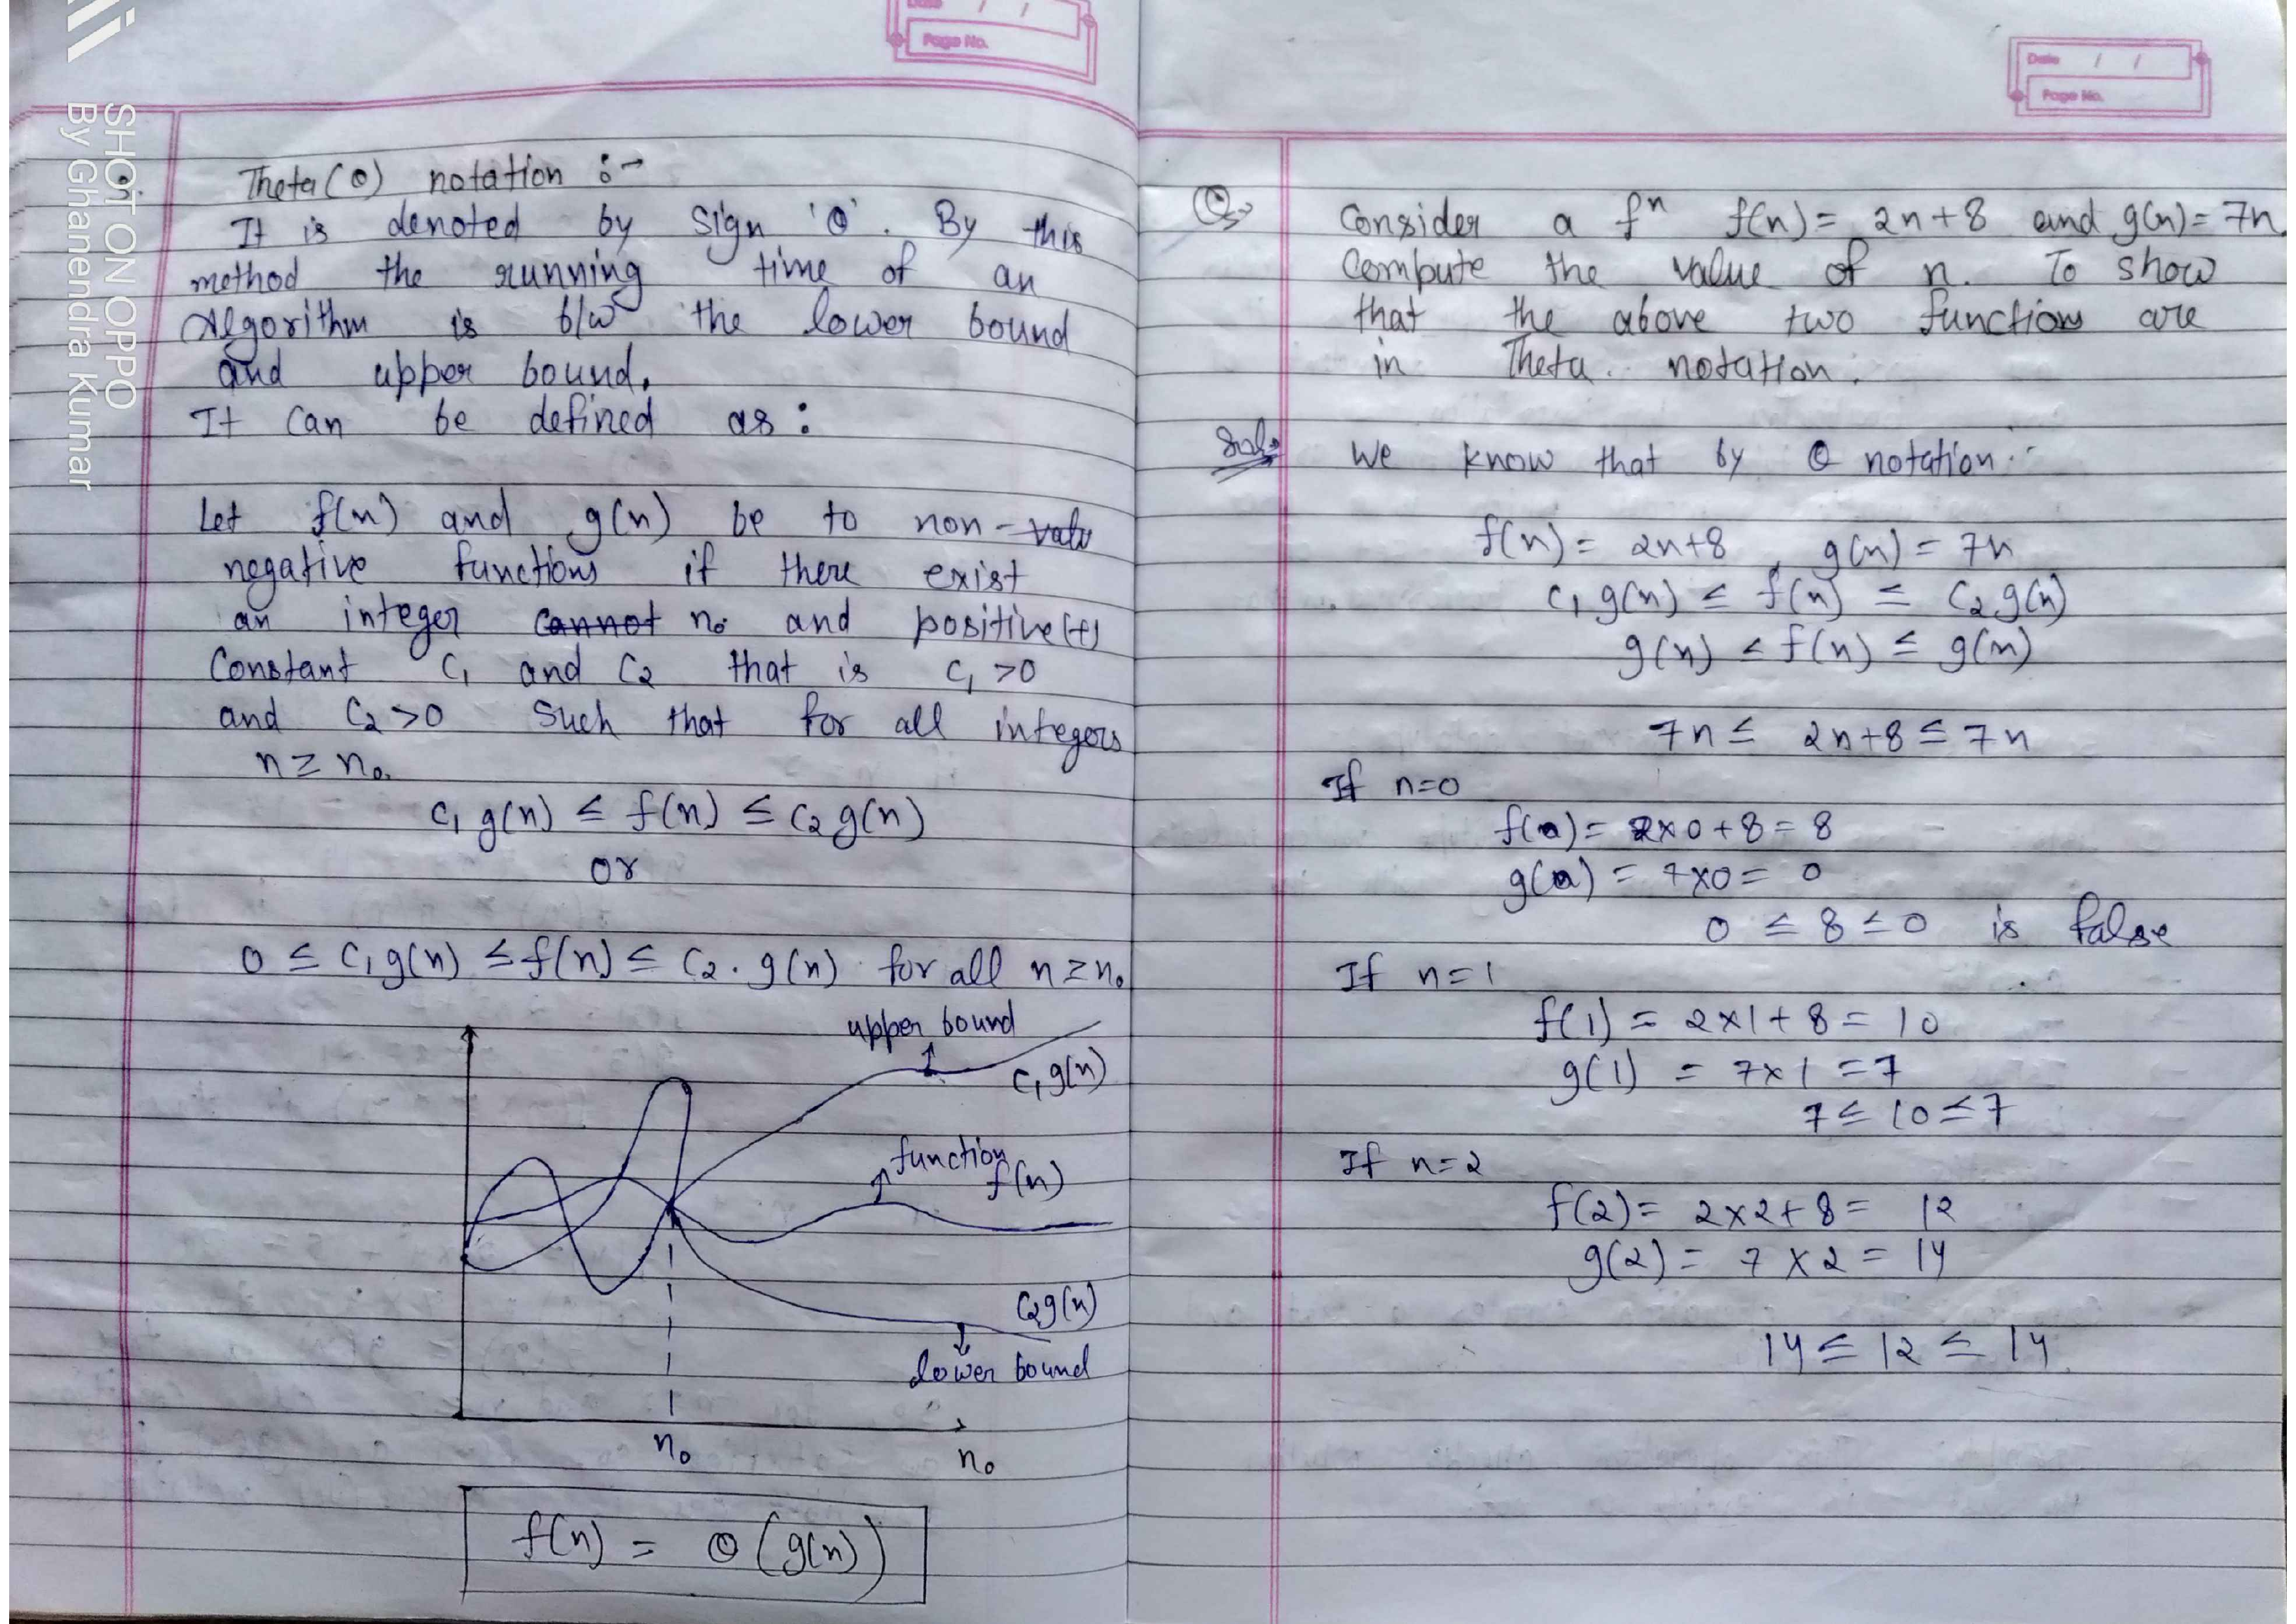 Date / /
Page No.
SHOT ON OPPO
By Ghanendra Kumar
3.
Theta (Θ) notation :-
It is denoted by sign 'Θ'. By this
method the running time of an
Algorithm is b/w the lower bound
and upper bound.
It can be defined as :
Let f(n) and g(n) be to non-
negative functions if there exist
an integer cannot n₀ and positive(+)
Constant C₁ and C₂ that is C₁ >0
and C₂ >0 Such that for all integers
n ≥ n₀.
C₁ g(n) ≤ f(n) ≤ C₂ g(n)
or
0 ≤ C₁ g(n) ≤ f(n) ≤ C₂ . g(n) for all n ≥ n₀
upper bound
C₁ g(n)
function
f(n)
C₂ g(n)
lower bound
n₀
n₀
f(n) = Θ (g(n))
Date / /
Page No.
Q→ Consider a fⁿ f(n) = 2n+8 and g(n) = 7n.
Compute the value of n. To show
that the above two functions are
in Theta. notation.
Sol→ We know that by Θ notation :-
f(n) = 2n+8 , g(n) = 7n
C₁ g(n) ≤ f(n) ≤ C₂ g(n)
g(n) ≤ f(n) ≤ g(n)
7n ≤ 2n+8 ≤ 7n
If n=0
f(0) = 2×0+8 = 8
g(0) = 7×0 = 0
0 ≤ 8 ≤ 0 is false
If n=1
f(1) = 2×1+8 = 10
g(1) = 7×1 = 7
7 ≤ 10 ≤ 7
If n=2
f(2) = 2×2+8 = 12
g(2) = 7×2 = 14
14 ≤ 12 ≤ 14